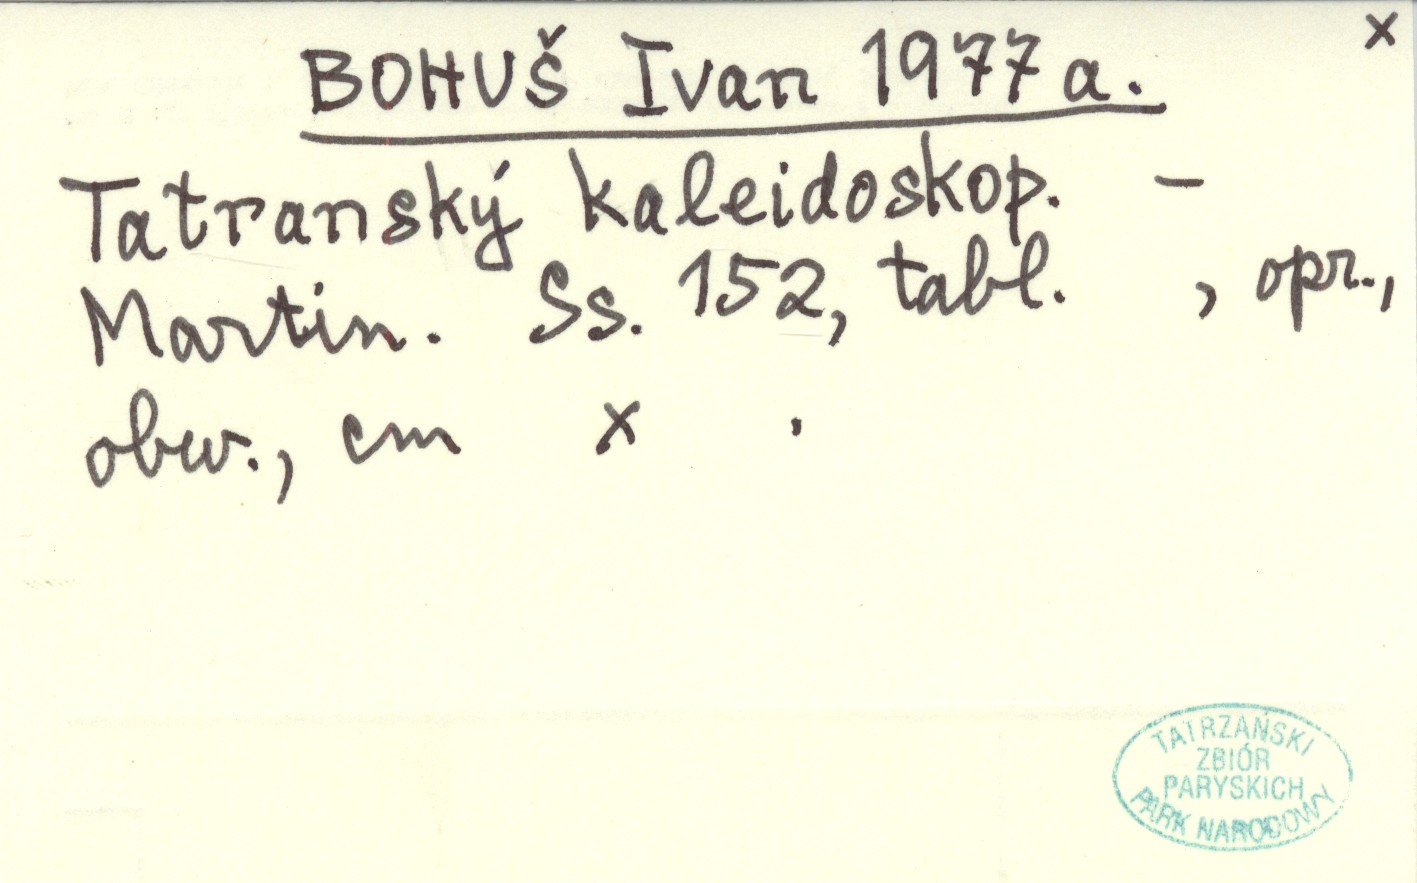 x
BOHUŠ Ivan 1977a.
Tatranský kaleidoskop. –
Martin. Ss. 152, tabl. , opr.,
obw., cm x .
TATRZAŃSKI
ZBIÓR
PARYSKICH
PARK NARODOWY